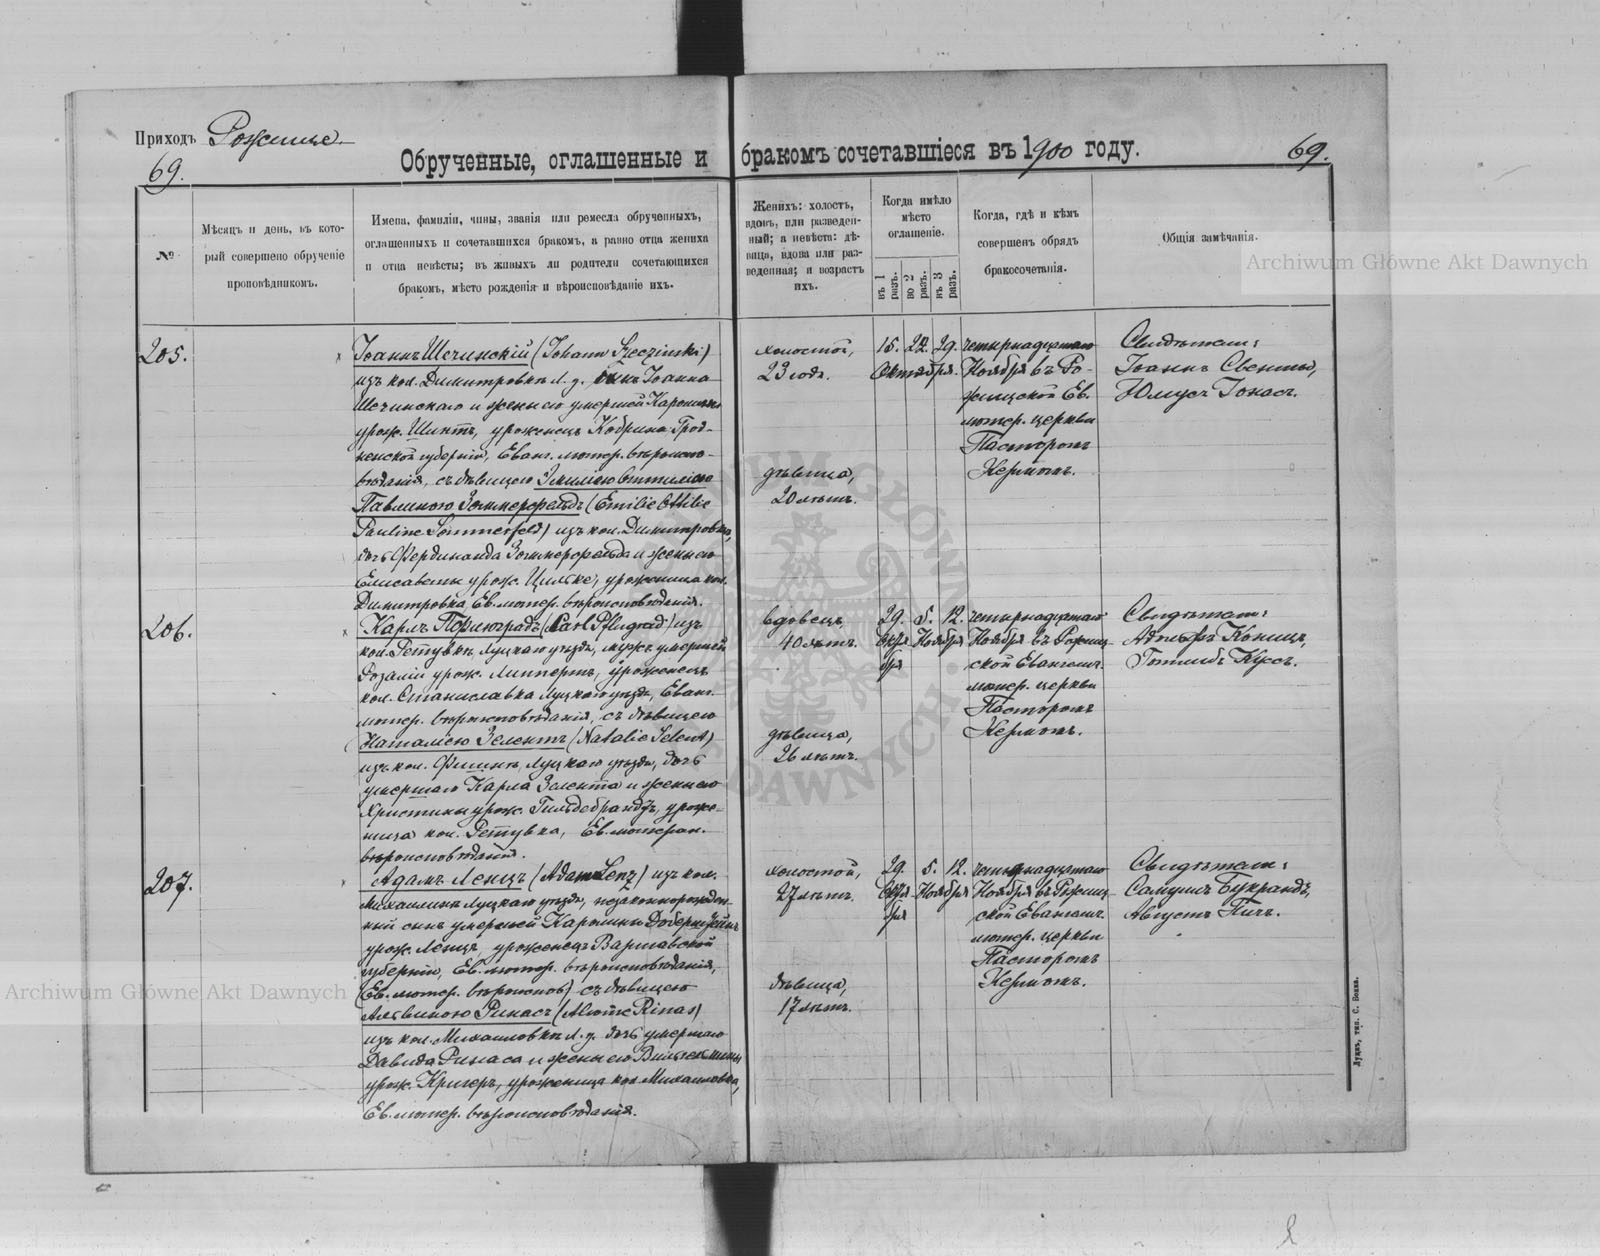 Приходъ Рожище
69.
Обрученные, оглашенные и бракомъ сочетавшіеся въ 1900 году.
69.
№
Мѣсяцъ и день, въ кото-
рый совершено обрученіе
проповѣдникомъ.
Имена, фамиліи, чины, званія или ремесла обрученныхъ,
оглашенныхъ и сочетавшихся бракомъ, а равно отца жениха
и отца невѣсты; въ живыхъ ли родители сочетающихся
бракомъ, мѣсто рожденія и вѣроисповѣданіе ихъ.
Женихъ: холостъ,
вдовъ, или разведен-
ный; а невѣста: дѣ-
вица, вдова или раз-
веденная; и возрастъ
ихъ.
Когда имѣло
мѣсто
оглашеніе.
въ 1 разъ.
во 2 разъ.
въ 3 разъ.
Когда, гдѣ и кѣмъ
совершенъ обрядъ
бракосочетанія.
Общія замѣчанія.
Archiwum Główne Akt Dawnych
205.
Іоаннъ Шечинскій (Johann Szeczinski)
изъ кол. Димитровка Л. у. сынъ Іоанна
Шечинскаго и жены его умершей Каролины
урож. Шинтъ, уроженецъ Кобрина Грод-
ненской губерніи, Еванг. лютер. вѣроиспо-
вѣданія, съ дѣвицею Эмиліею Оттиліею
Павлиною Зоммерфельдъ (Emilie Ottilie
Pauline Sommerfeld) изъ кол. Димитровка,
дочь Фердинанда Зоммерфельда и жены его
Елисаветы урож. Цилке, уроженица кол.
Димитровка, Ев. лютер. вѣроисповѣданія.
холостой,
23 года.
дѣвица,
20 лѣтъ.
15. 22. 29.
Октября.
четырнадцатаго
Ноября въ Ро-
жищской Ев.
лютер. церкви
Пасторомъ
Керммъ.
Свидѣтели:
Іоаннъ Свентъ,
Юлиусъ Іонасъ.
206.
Карлъ Пфлюградъ (Carl Pflugrad) изъ
кол. Ретувка, Луцкаго уѣзда, мужъ умершей
Розаліи урож. Липпертъ, уроженецъ
кол. Станиславка Луцкаго уѣзда, Еванг.
лютер. вѣроисповѣданія, съ дѣвицею
Наталіею Зелентъ (Natalie Selent)
изъ кол. Луцкаго уѣзда, дочь
умершаго Карла Зелента и жены его
Христины урож. Гильдебрандтъ, уроже-
ница кол. Ретувка, Ев. лютеран.
вѣроисповѣданія.
вдовецъ,
40 лѣтъ.
дѣвица,
26 лѣтъ.
29. 5. 12.
Октя- Ноября
бря
четырнадцатаго
Ноября въ Рожищ-
ской Евангел.
лютер. церкви
Пасторомъ
Свидѣтели:
Готлибъ Кусъ.
207.
Адамъ Ленцъ (Adam Lenz) изъ кол.
Михаилинъ Луцкаго уѣзда, незаконнорожден-
ный сынъ умершей Каролины
урож. Ленцъ, уроженецъ Варшавской
губерніи, Ев. лютер. вѣроисповѣданія,
(Ев. лютер. вѣроиспов) съ дѣвицею
Альвиною Ринасъ (Rinas)
изъ кол. Михаиловка Л. у. дочь умершаго
Давида Ринаса и жены его Вильгельмины
урож. Кригеръ, уроженица кол. Михаиловка,
Ев. лютер. вѣроисповѣданія.
холостой,
27 лѣтъ.
дѣвица,
17 лѣтъ.
29. 5. 12.
Октя- Ноября
бря
четырнадцатаго
Ноября въ Рожищ-
ской Евангел.
лютер. церкви
Пасторомъ
Свидѣтели:
Самуилъ Букрандъ,
Августъ Пичъ.
Archiwum Główne Akt Dawnych
Луцкъ, тип. С. Бонка.